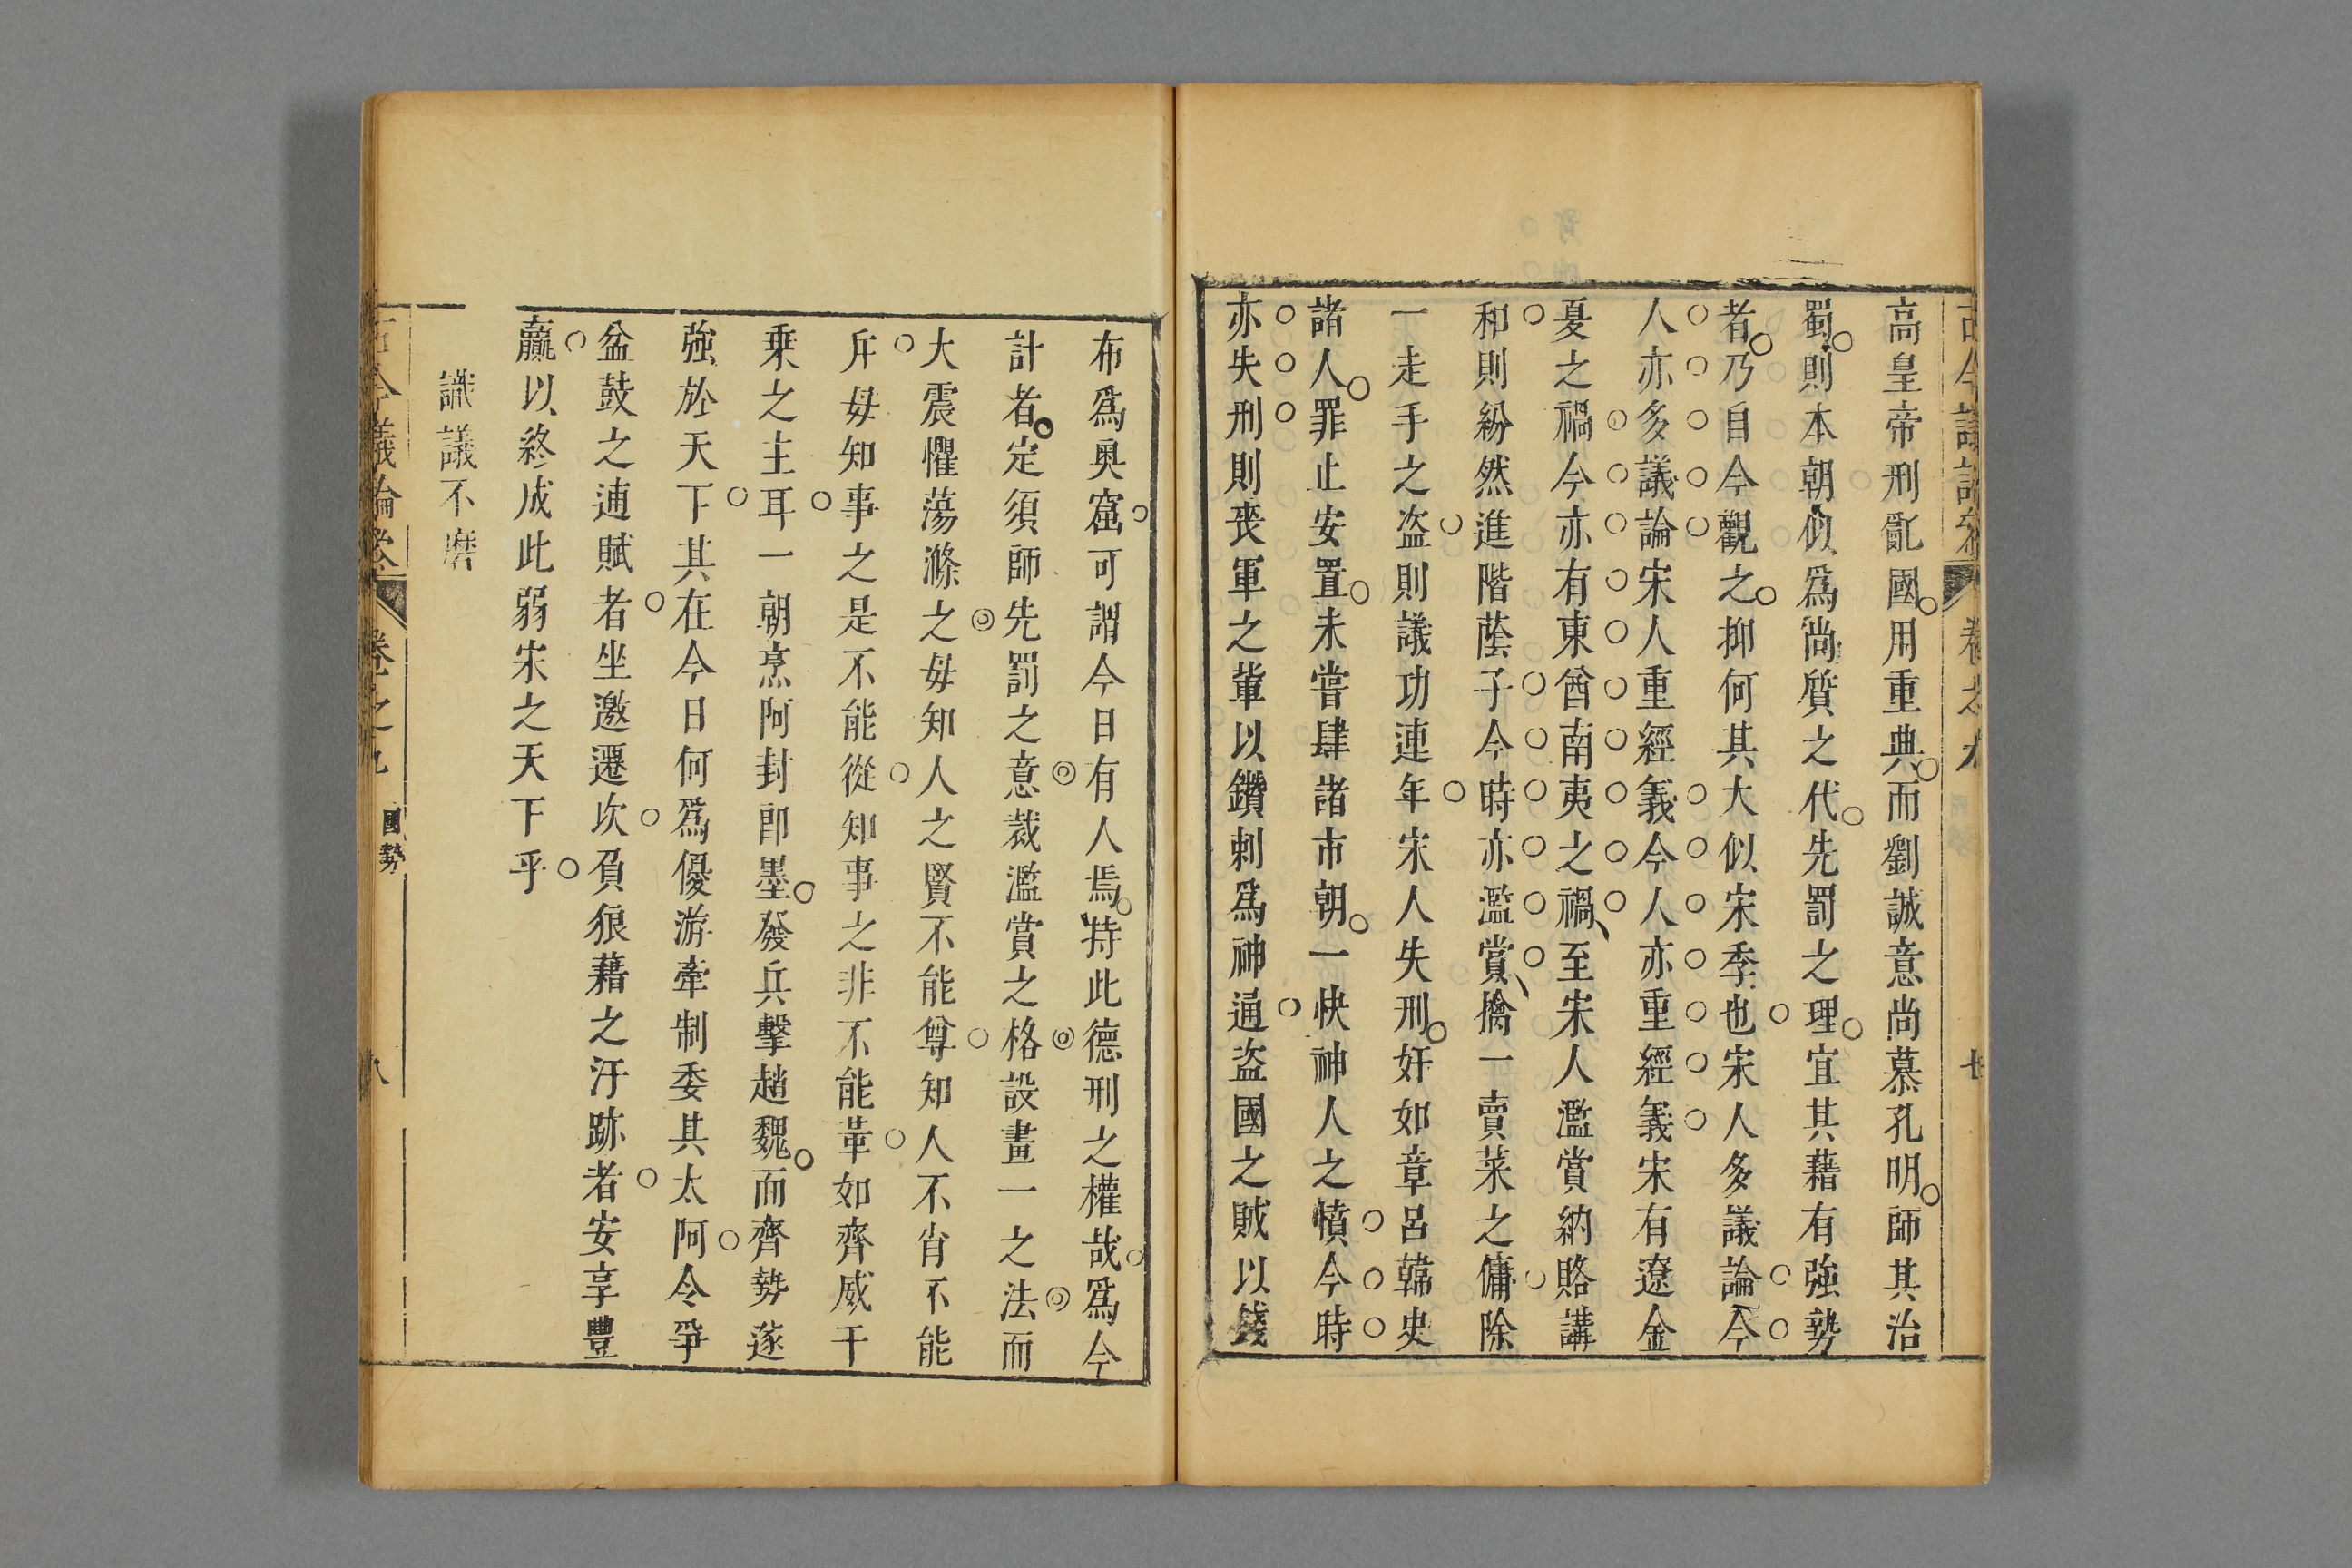 高皇帝刑亂國用重典而劉誠意尚慕孔明師其治
蜀則本朝似爲尚質之代先罰之理宜其藉有強勢
者乃自今觀之抑何其大似宋季也宋人多議論今
人亦多議論宋人重經義今人亦重經義宋有遼金
夏之禍今亦有東酋南夷之禍至宋人濫賞納賂講
和則紛然進階蔭子今時亦濫賞擒一賣菜之傭除
一走手之盜則議功連年宋人失刑奸如章呂韓史
諸人罪止安置未嘗肆諸市朝一快神人之憤今時
亦失刑則喪軍之輩以鑽刺爲神通盜國之賊以錢
布爲奥窟可謂今日有人焉持此德刑之權哉爲今
計者定須師先罰之意裁濫賞之格設畫一之法而
大震懼蕩滌之毋知人之賢不能尊知人不肖不能
斥毋知事之是不能從知事之非不能革如齊威干
乗之主耳一朝烹阿封即墨發兵擊趙魏而齊勢遂
強於天下其在今日何爲優游牽制委其太阿令爭
盆鼓之逋賦者坐邀遷坎負狼藉之汙跡者安享豐
贏以終成此弱宋之天下乎
識議不磨
古今議論 卷之九 國勢 八